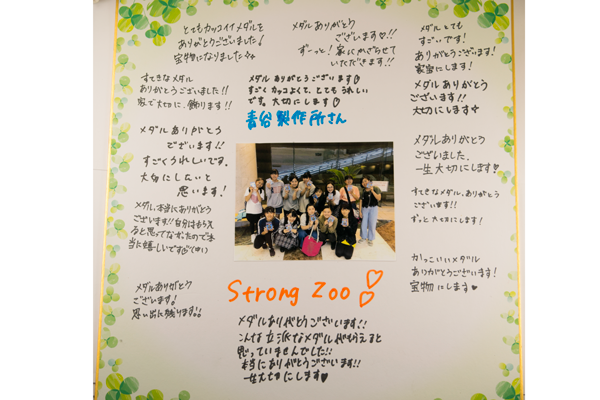 とてもカッコイイメダルを
ありがとうございました!
宝物になりました☆☆
メダルありがとう
ございます♡!!
ずーっと!家にかざらせて
いただきます!!
メダルとても
すごいです!
ありがとうございます!
家宝にします!
すてきなメダル
ありがとうございました!!
家で大切に、飾ります!!
メダルありがとうございます♡
すごくカッコよく、とてもうれしい
です。大切にします♡
青谷製作所さん
メダルありがとう
ございます!!
大切にします☆
メダルありがとう
ございます!!
すごくうれしいです。
大切にしないと
思います!
メダルありがとう
ございました。
一生大切にします♡
すてきなメダル、ありがとう
ございます!!
ずっと大切にします!
メダル、本当にありがとう
ございます!!自分はもらえ
ると思ってなかったので本
当に嬉しいです
かっこいいメダル
ありがとうございます!
宝物にします♥
メダルありがとう
ございます!
思い出に残ります!!
Strong Zoo♡♡
メダルありがとうございます!!
こんな立派なメダルがもらえると
思っていませんでした!!
本当にありがとうございます!!
一生大切にします♥